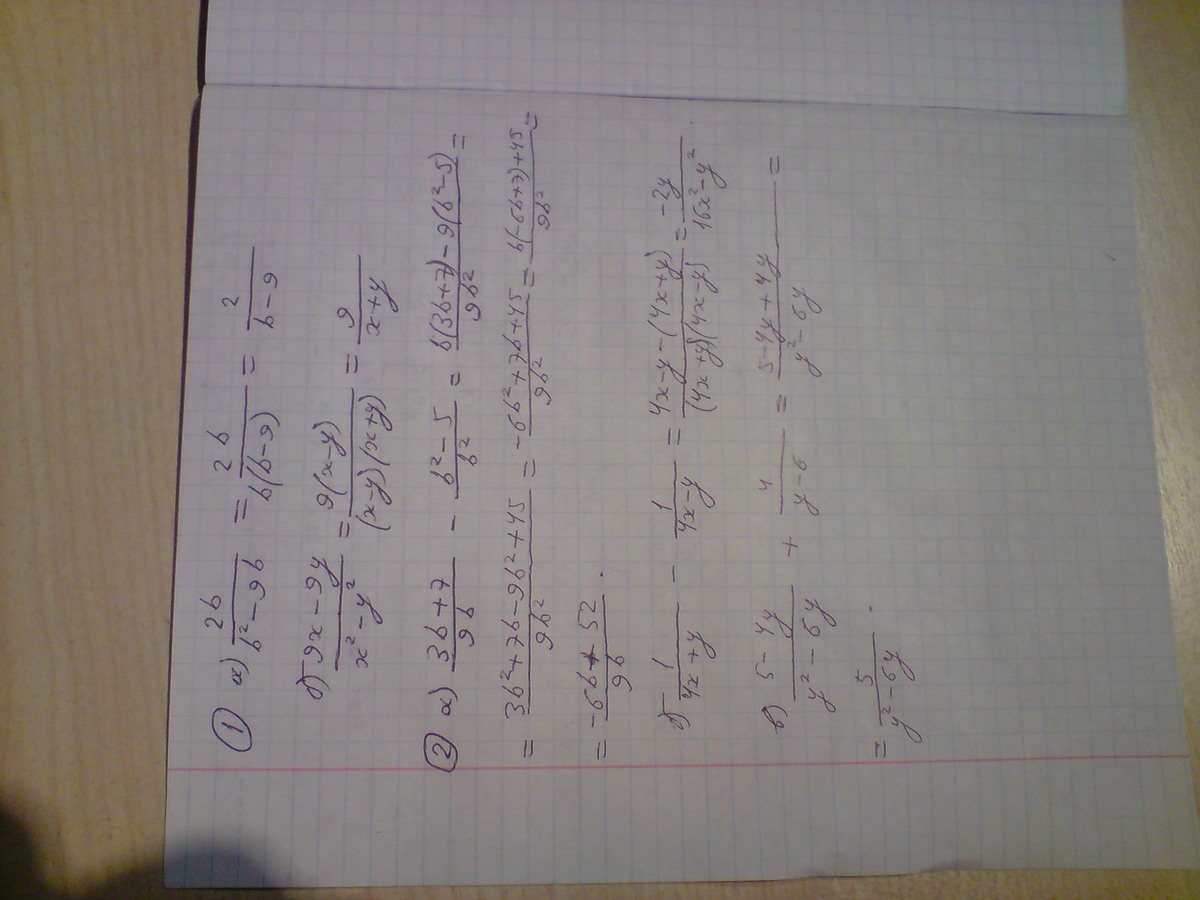 ① а) 2b/(b² − 9b) = 2b/(b(b−9)) = 2/(b−9)
б) (9x − 9y)/(x² − y²) = 9(x−y)/((x−y)(x+y)) = 9/(x+y)
② а) (3b+7)/(9b) − (b²−5)/b² = (b(3b+7) − 9(b²−5))/(9b²) =
= (3b²+7b−9b²+45)/(9b²) = (−6b²+7b+45)/(9b²) = (b(−6b+7)+45)/(9b²) =
= (−6b+52)/(9b).
б) 1/(4x+y) − 1/(4x−y) = (4x−y−(4x+y))/((4x+y)(4x−y)) = −2y/(16x²−y²).
в) (5−4y)/(y²−6y) + 4/(y−6) = (5−4y+4y)/(y²−6y) =
= 5/(y²−6y).